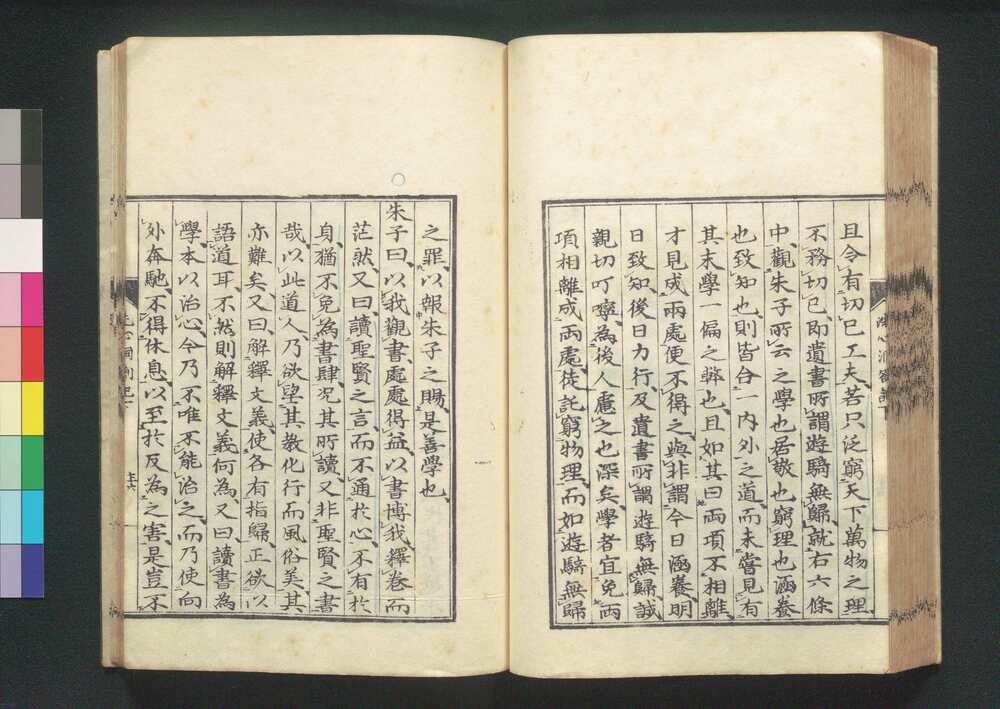 且今有切己工夫若只泛窮天下萬物之理
不務切己即遺書所謂遊騎無歸就右六條
中觀朱子所云之學也居敬也窮理也涵養
也致知也則皆合一內外之道而未嘗見有
其末學一偏之弊也且如其曰兩項不相離
才見成兩處便不得之與非謂今日涵養明
日致知後日力行及遺書所謂遊騎無歸誠
親切叮嚀為後人慮之也深矣學者宜免兩
項相離成兩處徒託窮物理而如遊騎無歸
之罪以報朱子之賜是善學也
朱子曰以我觀書處處得益以書博我釋卷而
茫然又曰讀聖賢之言而不通於心不有於
身猶不免為書肆況其所讀又非聖賢之書
哉以此道人乃欲望其教化行而風俗美其
亦難矣又曰解釋文義使各有指歸正欲以
語道耳不然則解釋文義何為又曰讀書為
學本以治心今乃不唯不能治之而乃使向
外奔馳不得休息以至於反為之害是豈不